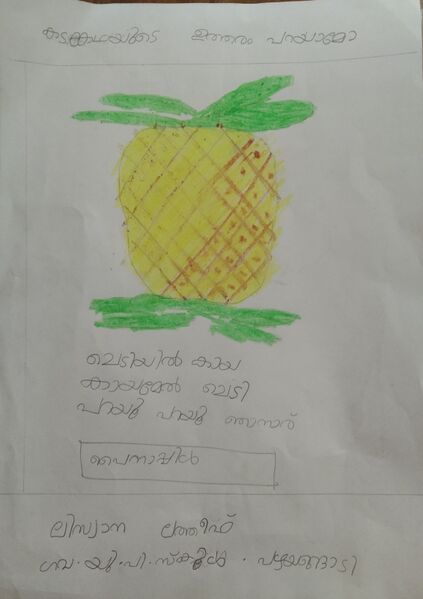 കടങ്കഥയുടെ ഉത്തരം പറയാമോ
ചെടിയിൽ കായ
കായമേൽ ചെടി
പറയൂ പറയൂ ഞാനാര്
പൈനാപ്പിൾ
ലിസ്വാന ലത്തീഫ്
ഗവ. യു. പി. സ്കൂൾ. പഴയങ്ങാടി